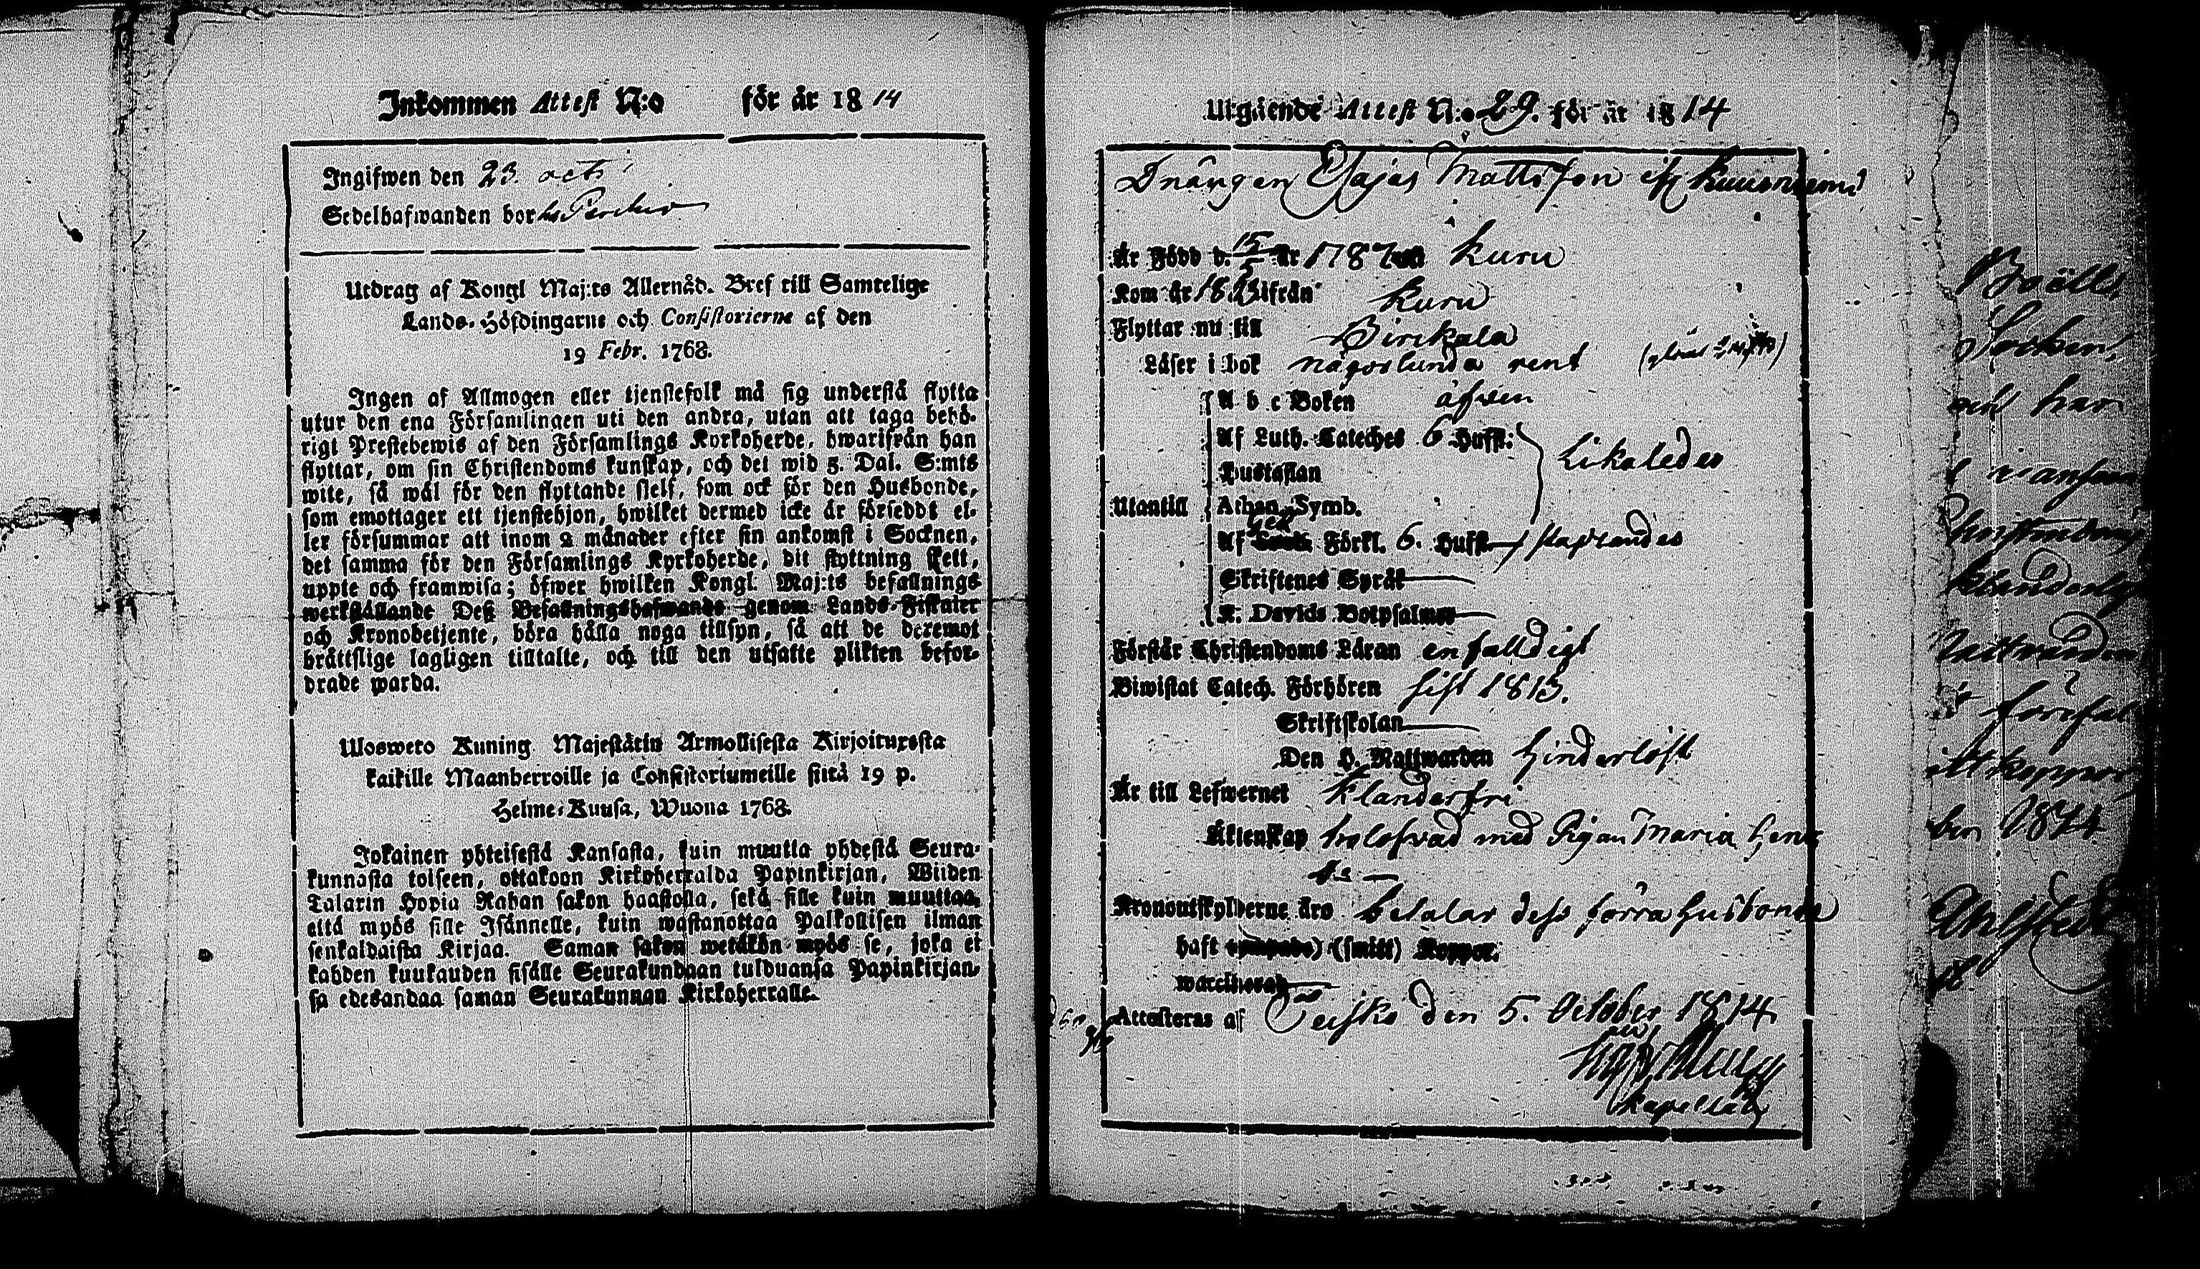 Inkommen Attest N:o för år 1814
Ingifwen den 23. octr
Sedelhafwanden bor hos
Utdrag af Kongl Maj:ts Allernåd. Bref till Samtelige
Lands-Höfdingarne och Consistorierne af den
19 Febr. 1768.
Ingen af Allmogen eller tjenstefolk må sig understå flytta
utur den ena Församlingen uti den andra, utan att taga behö-
rigt Prestebewis af den Församlings Kyrkoherde, hwarifrån han
flyttar, om sin Christendoms kunskap, och det wid 5. Dal. S:mts
wite, så wäl för den flyttande sielf, som ock för den Husbonde,
som emottager ett tjenstehjon, hwilket dermed icke är försedt el-
ler försummar att inom 2 månader efter sin ankomst i Socknen,
det samma för den Församlings Kyrkoherde, dit flyttning skett,
uppte och framwisa; öfwer hwilken Kongl. Maj:ts befallnings
werkställande Deß Befallningshafwande genom Lands-Fiskaler
och Kronobetjente, böra hålla noga tillsyn, så att de deremot
bråttslige lagligen tilltalte, och till den utsatte plikten befor-
drade warda.
Ulosweto Kuning. Majestätin Armollisesta Kirjoituxesta
kaikille Maanherroille ja Consistoriumeille siitä 19 p.
Helme-Kuusa, Wuona 1768.
Jokainen yhteisestä Kansasta, kuin muutta yhdestä Seura-
kunnasta toiseen, ottakoon Kirkoherralda Papinkirjan, Wiiden
Talarin Hopia Rahan sakon haastolla, sekä sille kuin muuttaa,
että myös sille Isännelle, kuin wastanottaa Palkollisen ilman
senkaldaista Kirjaa. Saman sakon wetäkön myös se, joka ei
kahden kuukauden sisälle Seurakundaan tulduansa Papinkirjan-
sa edesandaa saman Seurakunnan Kirkoherralle.
Utgående Attest N:o 29. för år 1814
Drängen Esajas Mattsson ifr Kuusniemi
Är Född d. 15/5 år 1787 uti Kuru
Kom år 1813 ifrån Kuru
Flyttar nu till Birckala
Läser i bok någorlunda rent
A b c Boken äfven
Af Luth. Cateches 6 Hufst. Likaledes
Hustaflan
Utantill Athan. Symb.
Af Förkl. 6. Hufst. staplandes
Skriftenes Språk
K. Davids Botpsalmer
Förstår Christendoms Läran enfalldigt
Biwistat Catech. Förhören sist 1813.
Skriftskolan
Den H. Nattwarden hinderlöst
Är till Lefwernet Klanderfri
Äktenskap trolofvad med Pigan Maria
Kronoutskylderne äro betalar dess förra husbonde
haft (smitt) Koppor.
waccinerad
Attesteras af Teisko den 5. October 1814
Kapellan
Socken,
och har
1814